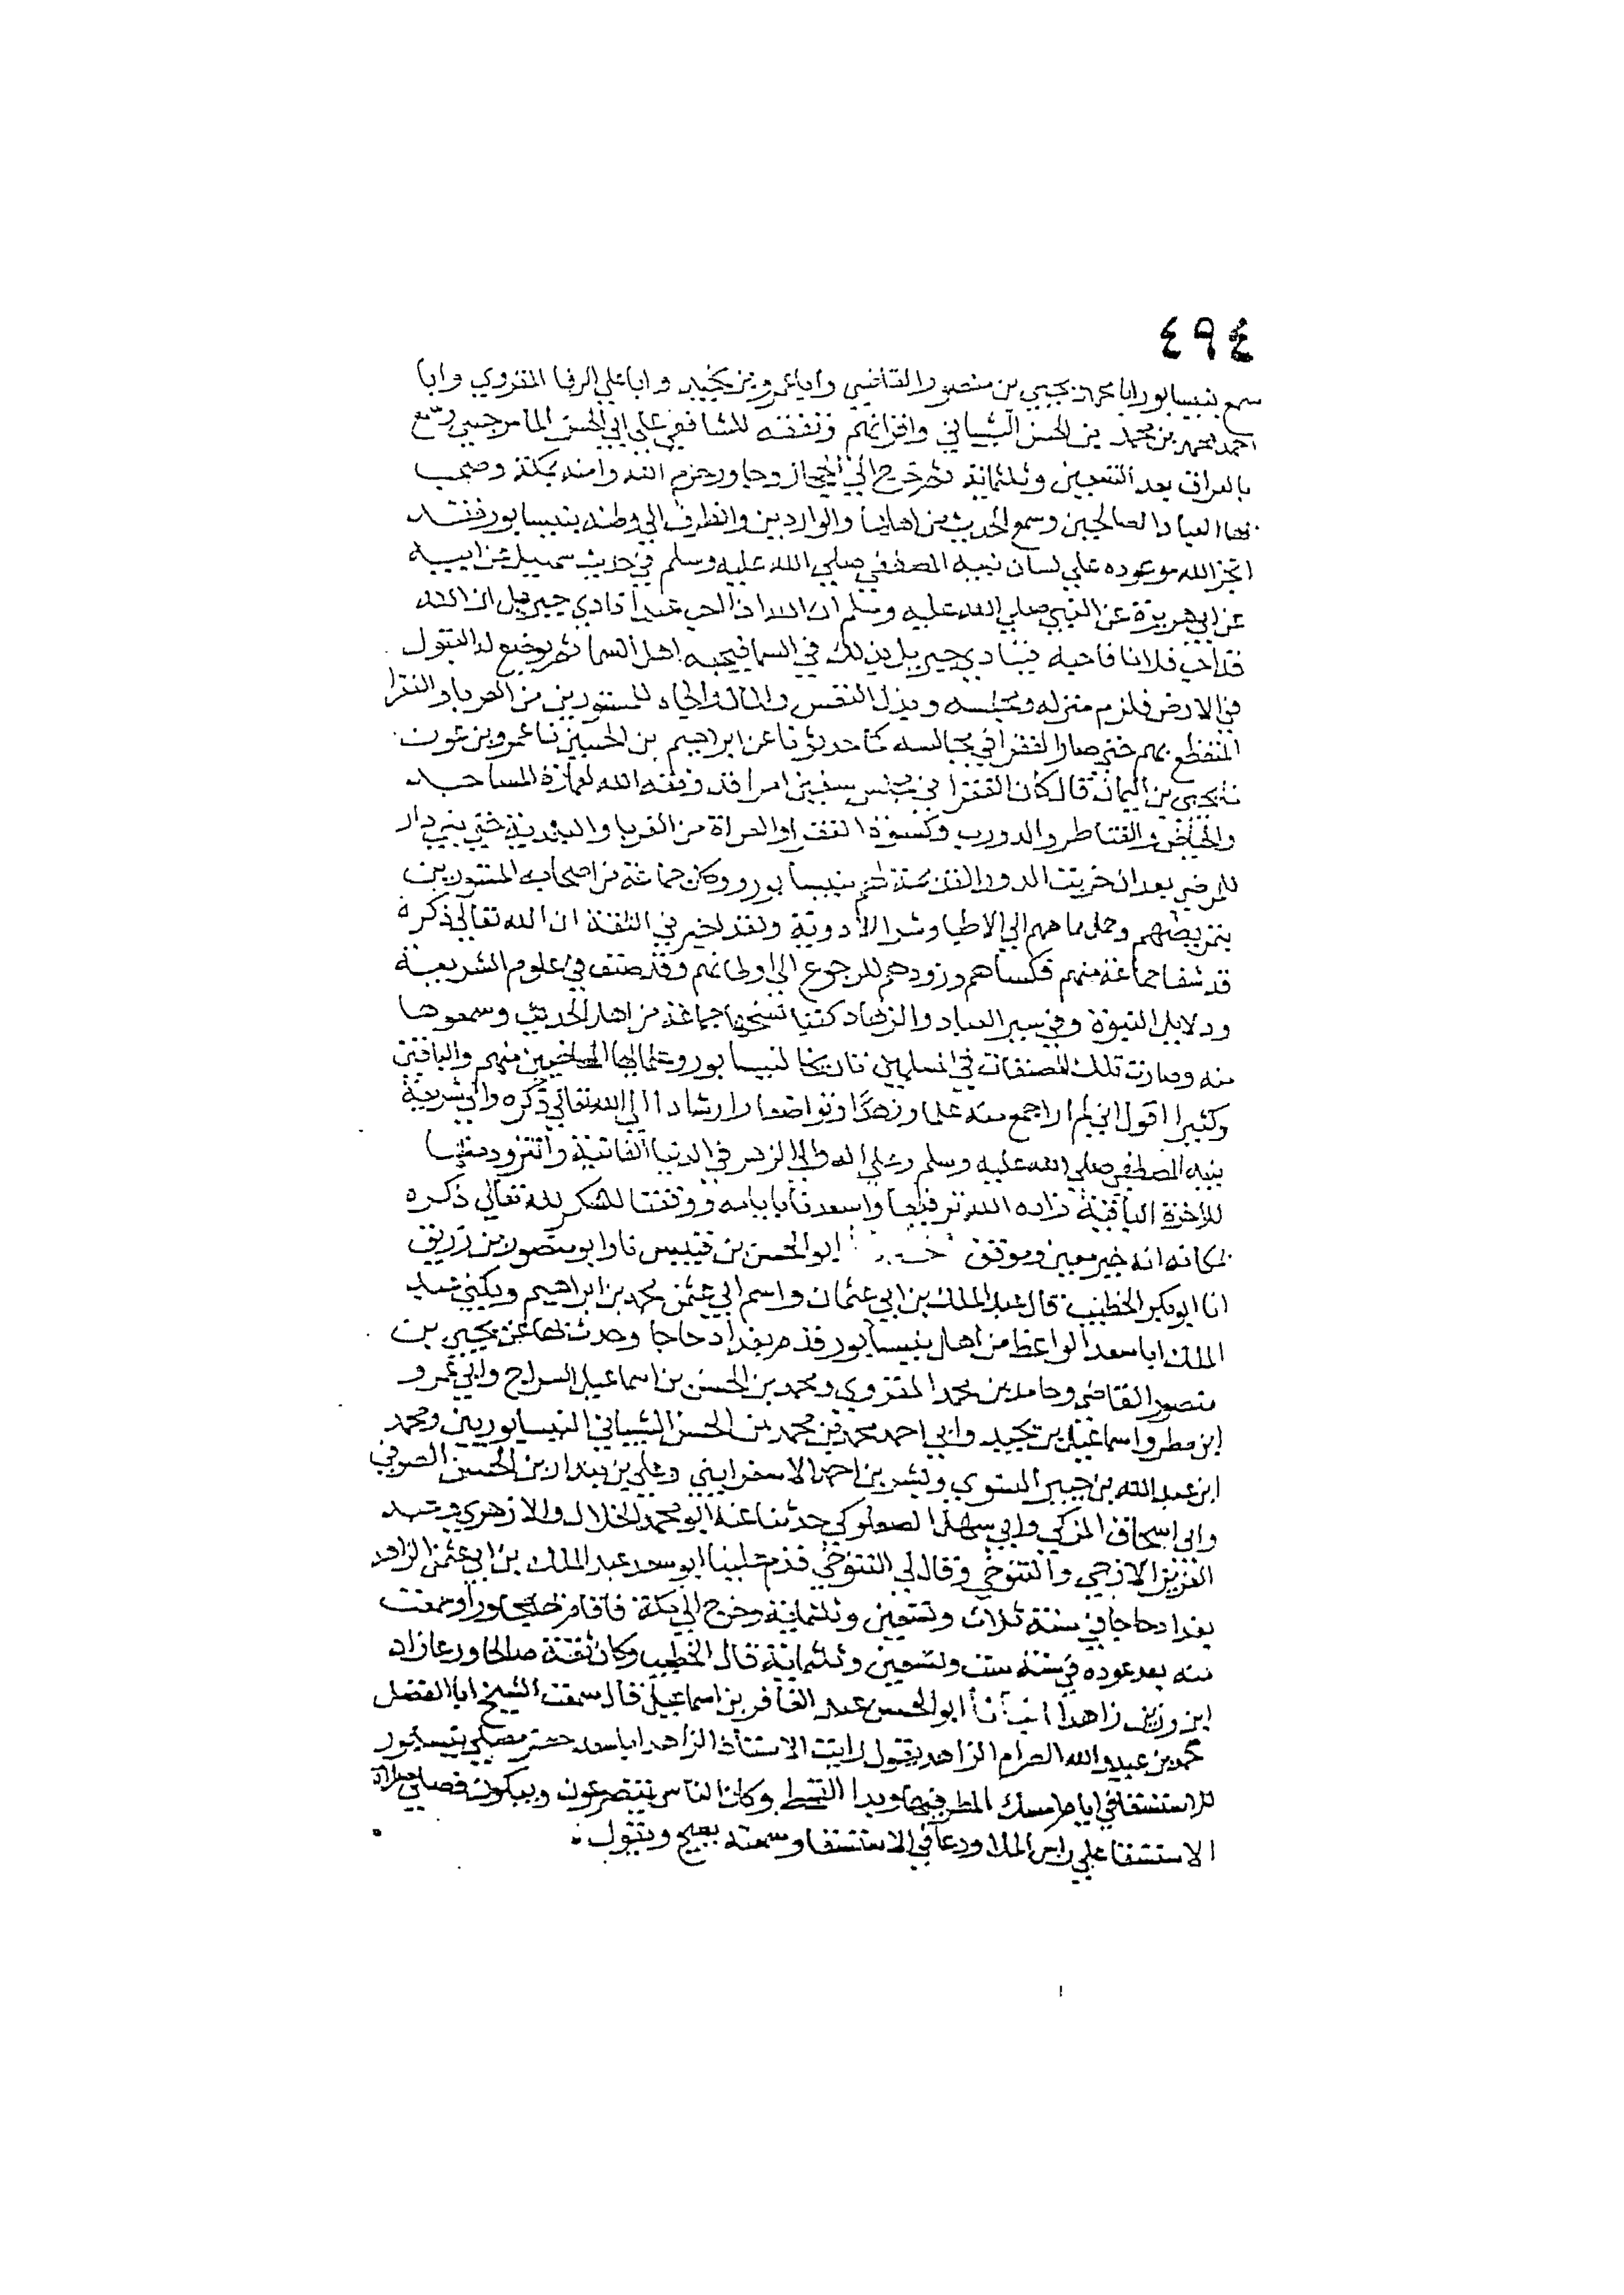 ٤٩٤
سمع بنيسابور ابا محمد يحيي بن منصور القاضي وابا عمرو بن نجيد وابا علي الرفا الهروي وابا
احمد محمد بن محمد بن الحسن الشيباني واقرانهم وتفقه للشافعي علي ابي الحسن الماسرجسي وسمع
بالعراق بعد التسعين وثلثماية ثم خرج الي الحجاز وجاور حرم الله وامنه بمكة وصحب
بها العباد الصالحين وسمع الحديث من اهلها والواردين وانصرف الي وطنه بنيسابور فقد
انجز الله موعوده علي لسان نبيه المصطفي صلي الله عليه وسلم في حديث سهيل عن ابيه
عن ابي هريرة عن النبي صلي الله عليه وسلم ان الله اذا احب عبدا نادي جبريل ان الله
قد احب فلانا فاحبه فينادي جبريل بذلك في السما فيحبه اهل السما ثم يوضع له القبول
في الارض فلزم منزله ومجلسه وبذل النفس والمال والجاه للمستورين من الغربا والفقرا
المنقطع بهم حتي صار الفقرا في مجالسه كما حدثونا عن ابراهيم بن الحسين نا عمرو بن عون
نا يحيي بن اليمان قال كان الفقرا في مجلس سفين امرا قد وفقه الله لعمارة المساجد
والحياض والقناطر والدروب وكسوة الفقرا والعراة من الغربا والبلدية حتي بني دار
للمرضي بعد ان خربت الدور القديمة لهم بنيسابور ووكل جماعة من اصحابه المستورين
بتمريضهم وحمل مياههم الي الاطبا وشرا الادوية ولقد اخبرني الثقة ان الله تعالي ذكره
قد شفا جماعة منهم فكساهم وزودهم للرجوع الي اوطانهم وقد صنف في علوم الشريعة
ودلايل النبوة وفي سير العباد والزهاد كتبا نسخها جماعة من اهل الحديث وسمعوها
منه وصارت تلك المصنفات في المسلمين تاريخا لنيسابور وعلمائها الماضين منهم والباقين
وكثيرا اقول اني لم ار اجمع منه علما وزهدا وتواضعا وارشادا الي الله تعالي ذكره والي شريعة
نبيه المصطفي صلي الله عليه وسلم وعلي اله والي الزهد في الدنيا الفانية والتزود منها
للاخرة الباقية زاده الله توفيقا واسعدنا بايامه ووفقنا للشكر لله تعالي ذكره
بمكانه انه خير معين وموفق ابو الحسن بن قبيس نا وابو منصور بن زريق
انا ابو بكر الخطيب قال عبد الملك بن ابي عثمان واسم ابي عثمن محمد بن ابراهيم ويكني عبد
الملك ابا سعد الواعظ من اهل نيسابور قدم بغداد حاجا وحدث بها عن يحيي بن
منصور القاضي وحامد بن محمد الهروي ومحمد بن الحسن بن اسماعيل السراج وابي عمرو
ابن مطر واسماعيل بن نجيد وابي احمد محمد بن محمد بن الحسن الشيباني النيسابوريين ومحمد
ابن عبد الله بن جبير النسوي وبشر بن احمد الاسفرايني وعلي بن بندار بن الحسن الصوفي
وابي اسحاق المزكي وابي سهل الصعلوكي حدثنا عنه ابو محمد الخلال والازهري وعبد
العزيز الازجي والتنوخي وقال لي التنوخي قدم علينا ابو سعد عبد الملك بن ابي عثمن الزاهد
بغداد حاجا في سنة ثلاث وتسعين وثلثماية وخرج الي مكة فاقام بها مجاورا وسمعت
منه بعد عوده في سنة ست وتسعين وثلثماية قال الخطيب وكان ثقة صالحا ورعا زاد
ابن زريق زاهدا انبانا ابو الحسن عبد الغافر بن اسماعيل قال سمعت الشيخ ابا الفضل
محمد بن عبيد الله الصرام الزاهد يقول رايت الاستاذ الزاهد ابا سعد حضر مصلي نيسابور
للاستسقا في ايام امسك المطر فيها وبدا القحط وكان الناس يتضرعون ويبكون فصلي صلاة
الاستسقا علي راس الملا ودعا في الاستسقا وسمعته يصيح ويقول